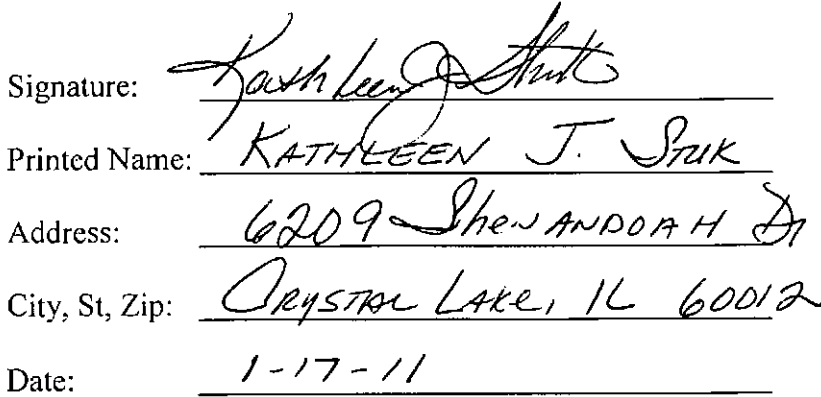 Signature: Kathleen J Stuk
Printed Name: KATHLEEN J. STUK
Address: 6209 SheNANDOAH Dr
City, St, Zip: CRYSTAL LAKe, IL 60012
Date: 1-17-11